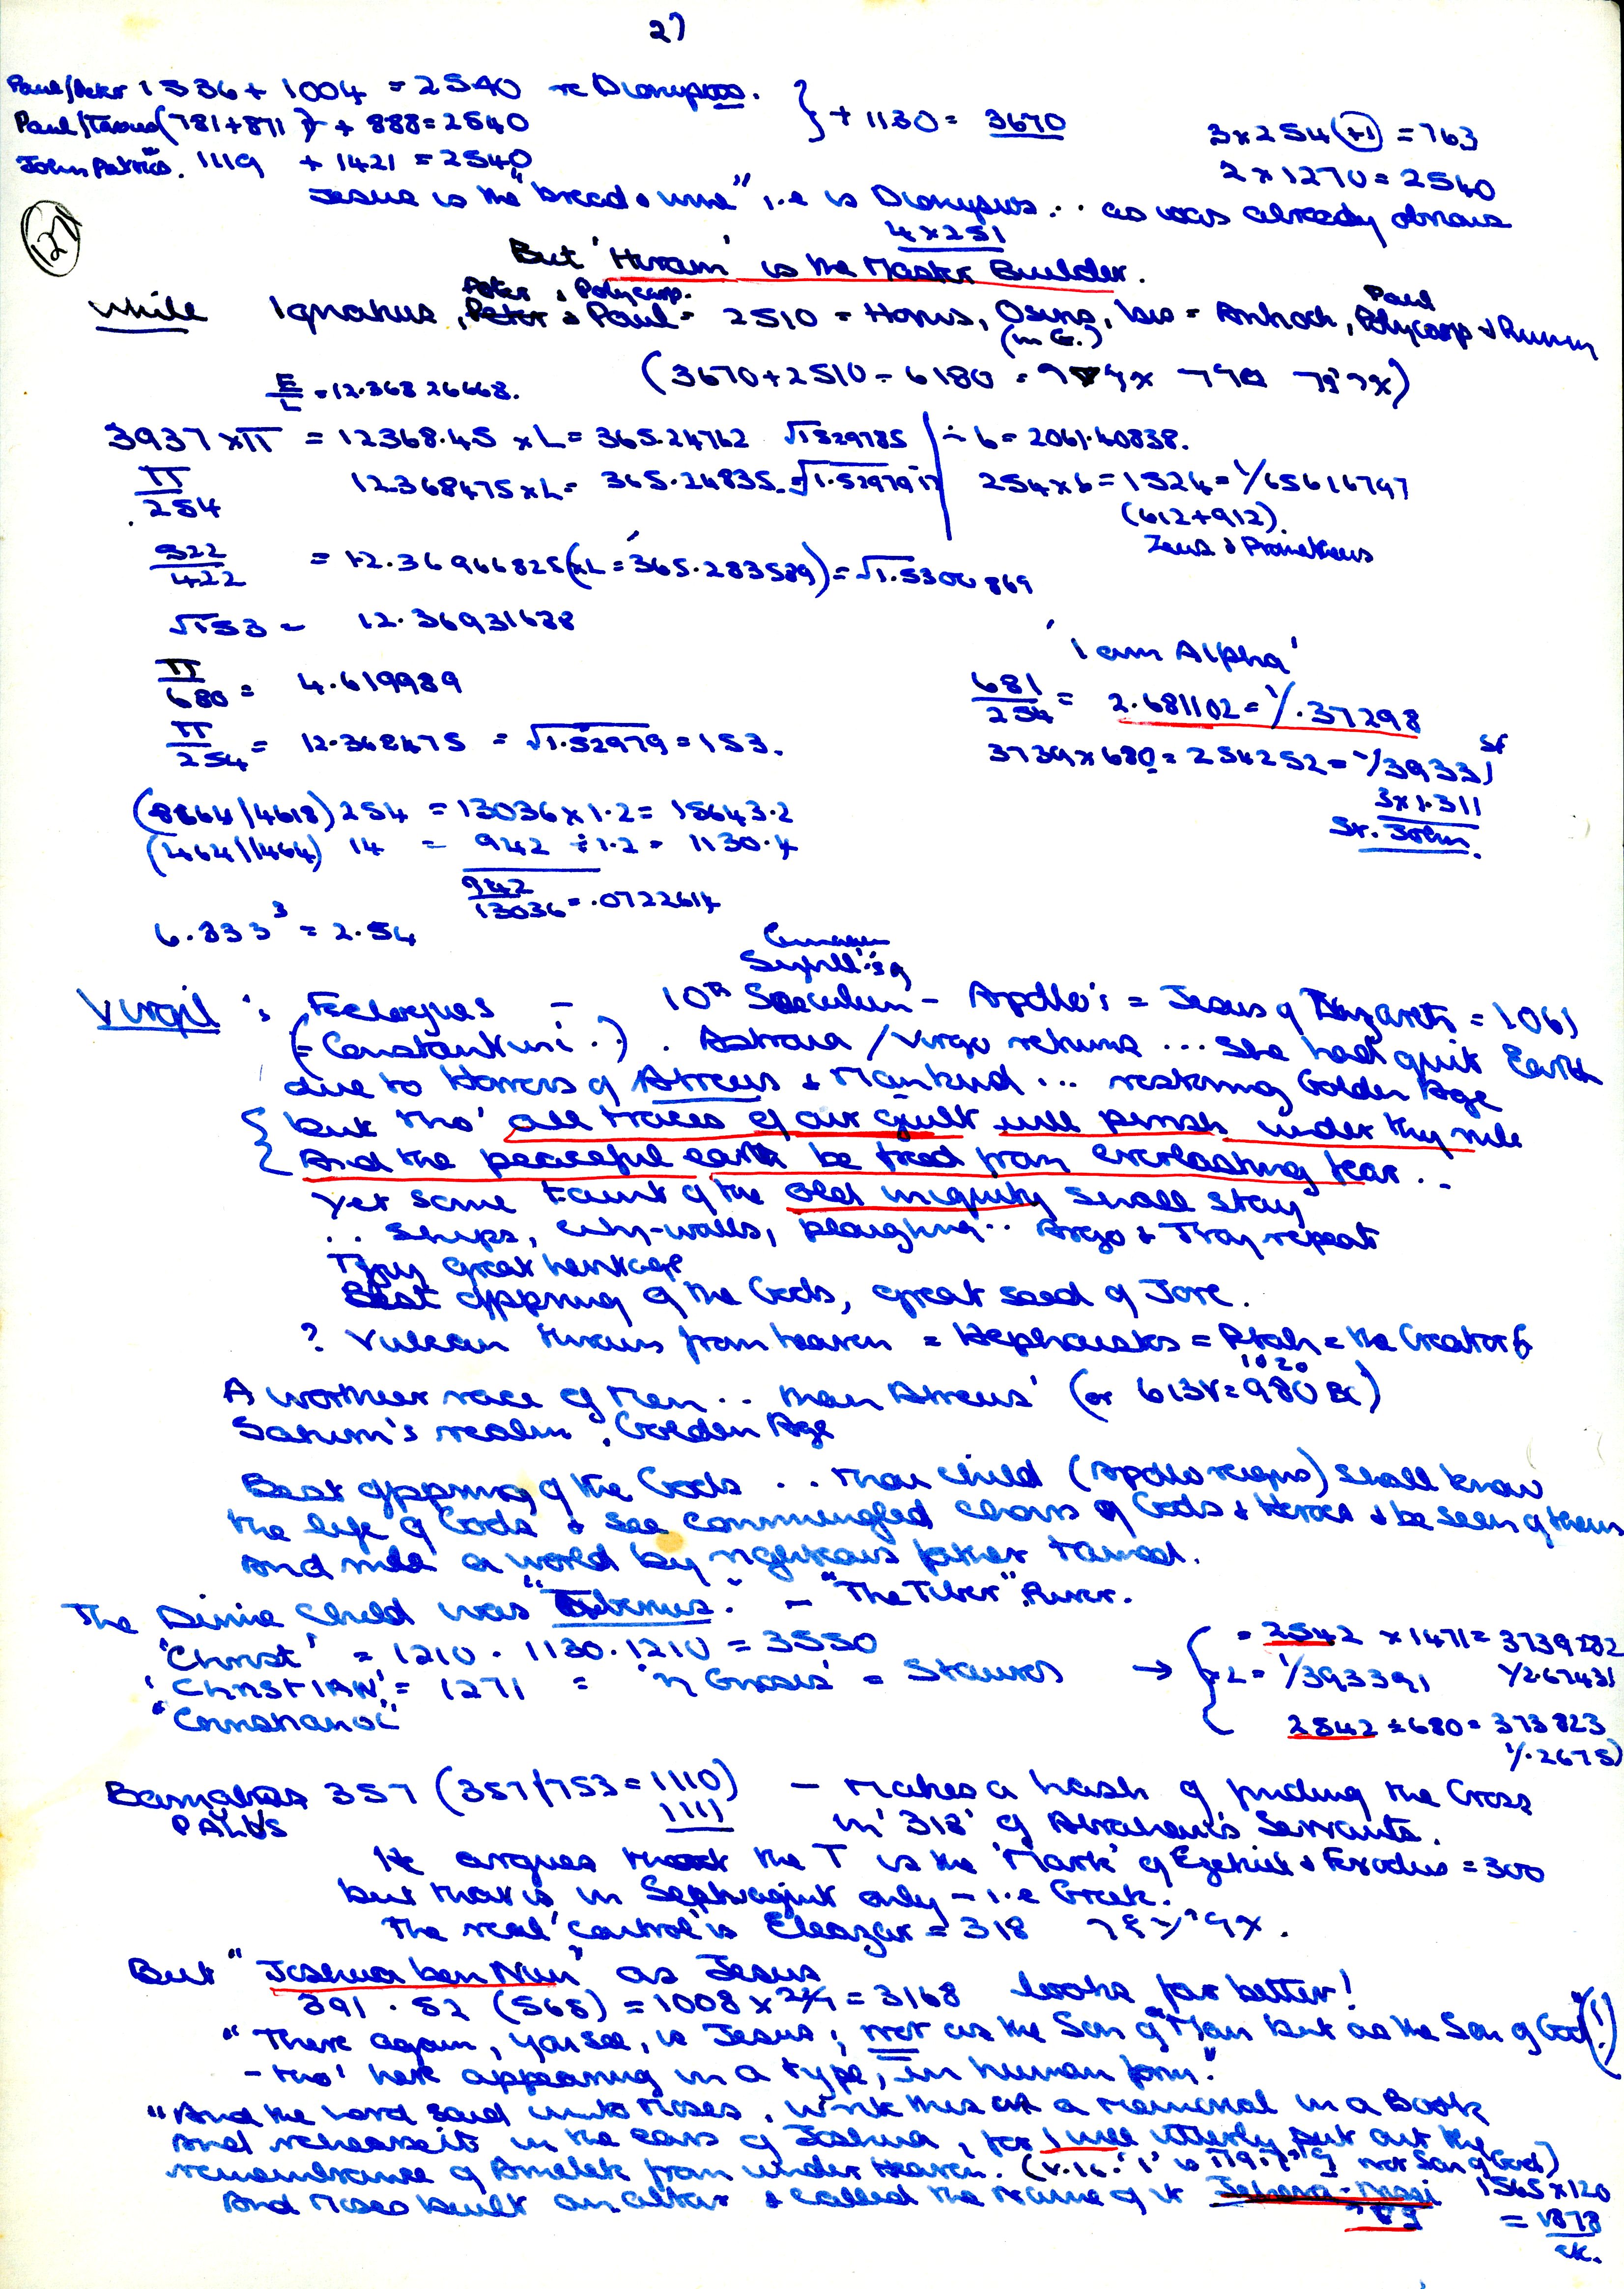 27
Paul/Peter 1536 + 1004 = 2540 re Dionysos. } + 1130 = 3670
Paul/ (781+871) + 888 = 2540
3x254(+1) = 763
John Patric. 1119 + 1421 = 2540
2 x 1270 = 2540
Jesus is the "bread & wine" i.e is Dionysus .. as was already obvious
127
4x251
But 'Hiram' is the Master Builder.
Peter & Polycarp.
while Ignatius, Peter & Paul = 2510 = Horus, Osiris, Isis = Antioch, Paul Polycarp &
(in G.)
(3670 + 2510 = 6180
E/L = 12.36826668.
3937 x π = 12368.45 x L = 365.24762 √1529785 ÷ 6 = 2061.40838.
π/254 12.368475 x L = 365.24835 = √1.5297917 254 x 6 = 1524 = 1/65616797
(612+912).
Zeus & Prometheus
522/422 = 12.36966825 (xL = 365.283589) = √1.5300869
√153 = 12.36931688
'I am Alpha'
π/680 = 4.619989
681/254 = 2.681102 = 1/.37298
π/254 = 12.368475 = √1.52979 = 153.
3739 x 680 = 254252 = 1/39331
3x1.311
St. John.
(8864/4618) 254 = 13036 x 1.2 = 15643.2
(1464/1464) 14 = 942 ÷ 1.2 = 1130.4
942/13036 = .0722614
6.333³ = 2.54
Cumaean
Sibyll's
Virgil's Eclogues - 10th Saeculum - Apollo's = Jesus of Nazareth = 1061
(= Constantini ..) . Astraea / Virgo returns ... She had quit Earth
due to Horrors of Atreus & Mankind ... restoring Golden Age
{ but tho' all traces of our guilt will perish under thy rule
{ And the peaceful earth be freed from everlasting fear ..
Yet some taint of the old iniquity shall stay
.. Ships, city-walls, ploughing .. Argo & Troy repeat
Thy great heritage
Best offspring of the Gods, great seed of Jove.
? Vulcan thrown from heaven = Hephaistos = Ptah = the Creator
1020
A worthier race of Men .. than Atreus' (or = 980 BC)
Saturn's realm, Golden Age
Best offspring of the Gods .. thou child (Apollo reigns) shall know
the life of Gods & see commingled choirs of Gods & Heroes & be seen of them
And rule a world by righteous father tamed.
The Divine Child was " " - "The Tiber" River.
'Christ' = 1210 . 1130 . 1210 = 3550
= 2542 x 1471 = 3739282
'CHRISTIAN' = 1271 = 'η Gnosis' = Stauros → ÷ L = 1/393391 1/2.67431
2542 ÷ 680 = 373823
1/.2675)
Barnabas 357 (357/753 = 1110) - Makes a hash of finding the Cross
1111 in '318' of Abraham's Servants.
He argues that the T is the 'Mark' of Ezekiel & Exodus = 300
but that is in Septuagint only - i.e Greek.
The real 'control' is Eleazar = 318
But "Joshua ben Nun" as Jesus
391 . 52 (565) = 1008 x 22/7 = 3168 looks far better!
"There again, you see, is Jesus; not as the Son of Man but as the Son of God" (!)
- tho' here appearing in a type, in human form."
"And the Lord said unto Moses, Write this as a Memorial in a Book
And rehearse it in the ears of Joshua, for I will utterly put out the
remembrance of Amalek from under Heaven. not Son of God)
And Moses built an altar & called the Name of it Jehova-Nissi 1565 x 120
= 1878